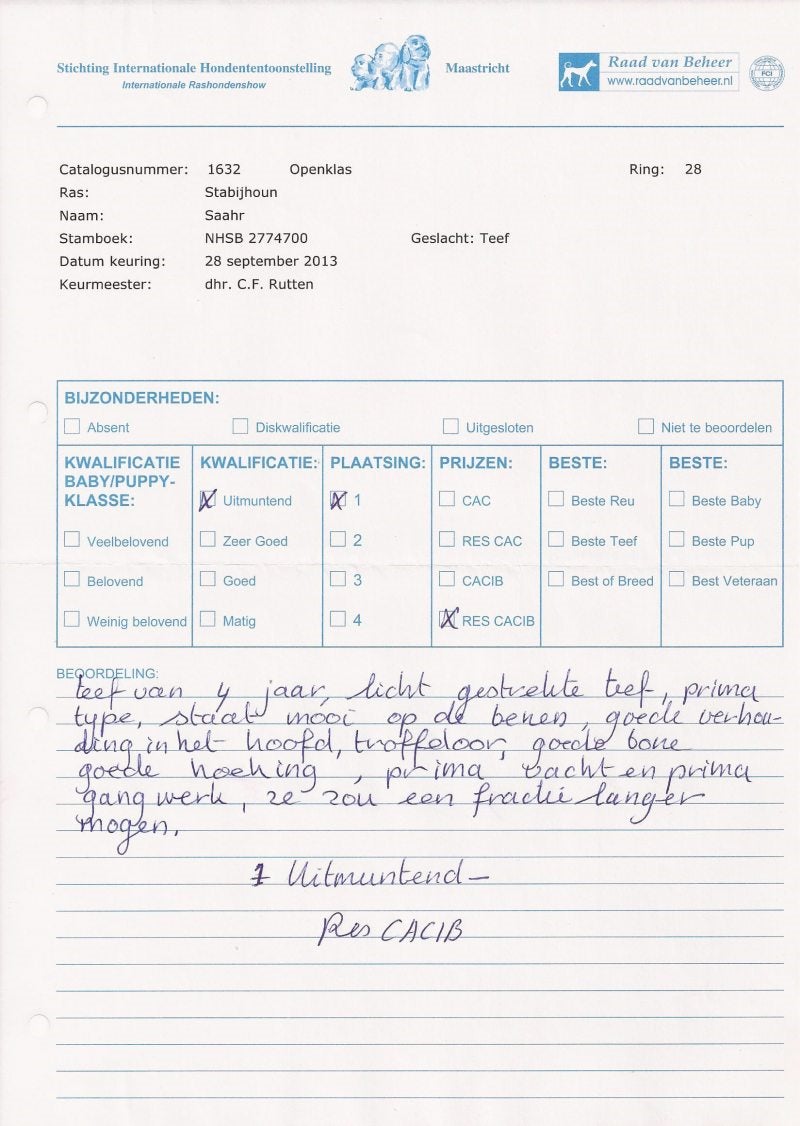 Stichting Internationale Hondententoonstelling Maastricht
Internationale Rashondenshow
Raad van Beheer
www.raadvanbeheer.nl
FCI
Catalogusnummer: 1632 Openklas Ring: 28
Ras: Stabijhoun
Naam: Saahr
Stamboek: NHSB 2774700 Geslacht: Teef
Datum keuring: 28 september 2013
Keurmeester: dhr. C.F. Rutten
BIJZONDERHEDEN:
Absent Diskwalificatie Uitgesloten Niet te beoordelen
KWALIFICATIE BABY/PUPPY-KLASSE:
Veelbelovend
Belovend
Weinig belovend
KWALIFICATIE:
X Uitmuntend
Zeer Goed
Goed
Matig
PLAATSING:
X 1
2
3
4
PRIJZEN:
CAC
RES CAC
CACIB
X RES CACIB
BESTE:
Beste Reu
Beste Teef
Best of Breed
BESTE:
Beste Baby
Beste Pup
Best Veteraan
BEOORDELING:
teef van 4 jaar, licht gestrekte teef, prima
type, staat mooi op de benen, goede verhou-
ding in het hoofd, troffeloor, goede bone
goede hoeking, prima vacht en prima
gangwerk, ze zou een fractie langer
mogen.
1 Uitmuntend -
Res CACIB